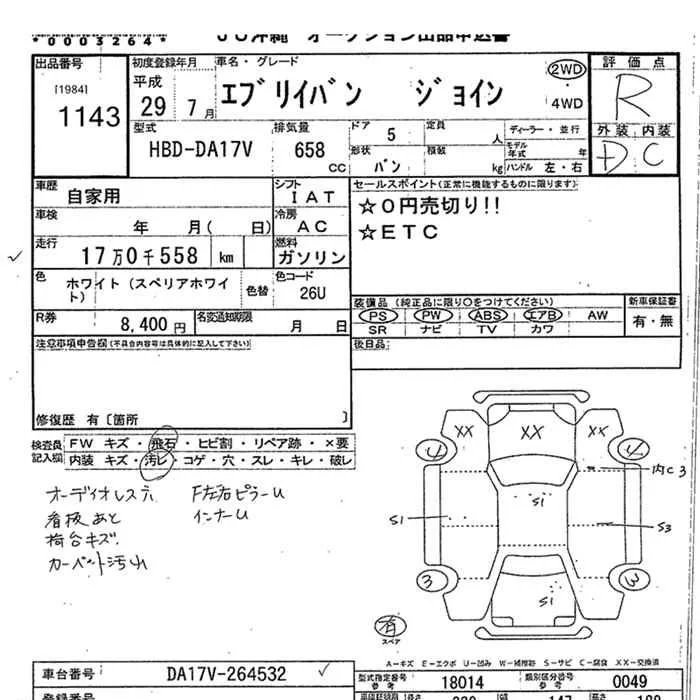 *0003264* JU沖縄 オークション出品申込書
出品番号
[1984]
1143
初度登録年月
平成
29 7月
車名・グレード
エブリイバン ジョイン
2WD
・
4WD
評価点
R
外装 内装
D C
型式
HBD-DA17V
排気量
658
CC
ドア
5
定員
人
ディーラー・並行
形状
バン
積載
kg
モデル
年式 年
ハンドル 左・右
車歴
自家用
シフト
IAT
車検
年 月( 日)
冷房
AC
走行
17万0千558 km
燃料
ガソリン
色
ホワイト(スペリアホワイ
ト)
色替
色コード
26U
R券
8,400 円
名変通知期限
月 日
セールスポイント(正常に機能するものに限ります)
☆0円売切り!!
☆ETC
装備品(純正品に限り○をつけてください)
PS PW ABS エアB AW
SR ナビ TV カワ
新車保証書
有・無
後日品:
注意事項申告欄(不具合内容等は具体的に記入して下さい)
修復歴 有〔箇所 〕
検査員
記入欄
FW キズ・飛石・ヒビ割・リペア跡・×要
内装 キズ・汚レ・コゲ・穴・スレ・キレ・破レ
オーディオレス
看板あと
荷台キズ
カーペット汚れ
F左右ピラーU
インナーU
XX XX XX
4 4
内C3
S1
S1
S3
3 3
S1
有
スペア
A-キズ E-エクボ U-凹み W-補修跡 S-サビ C-腐食 XX-交換済
車台番号
DA17V-264532
型式指定番号
参考
18014
類別区分番号
参考
0049